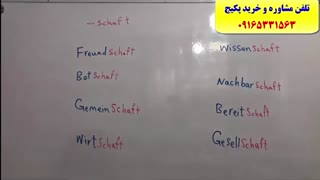 تلفن مشاوره و خرید پکیج
۰۹۱۶۵۳۳۱۵۶۳
-schaft
Freundschaft
Wissenschaft
Botschaft
Nachbarschaft
Gemeinschaft
Bereitschaft
Wirtschaft
Gesellschaft